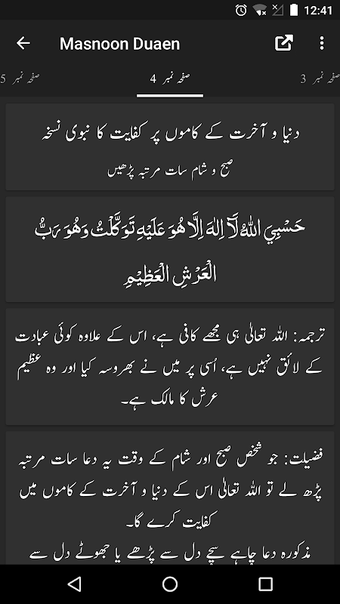 12:41
Masnoon Duaen
صفحہ نمبر 3
صفحہ نمبر 4
صفحہ نمبر 5
دنیا و آخرت کے کاموں پر کفایت کا نبوی نسخہ
صبح و شام سات مرتبہ پڑھیں
حَسْبِيَ اللّٰهُ لَآ اِلٰهَ اِلَّا هُوَ عَلَيْهِ تَوَكَّلْتُ وَهُوَ رَبُّ
الْعَرْشِ الْعَظِيْمِ
ترجمہ: اللہ تعالیٰ ہی مجھے کافی ہے، اس کے علاوہ کوئی عبادت
کے لائق نہیں ہے، اُسی پر میں نے بھروسہ کیا اور وہ عظیم
عرش کا مالک ہے۔
فضیلت: جو شخص صبح اور شام کے وقت یہ دعا سات مرتبہ
پڑھ لے تو اللہ تعالیٰ اس کے دنیا و آخرت کے کاموں میں
کفایت کرے گا۔
مذکورہ دعا چاہے سچے دل سے پڑھے یا جھوٹے دل سے